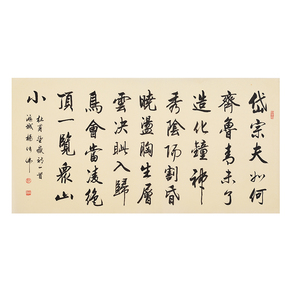 岱宗夫如何
齊魯青未了
造化鐘神
秀陰陽割昏
曉盪胸生層
雲決眦入歸
鳥會當凌絕
頂一覽眾山
小
杜甫望嶽詩一首